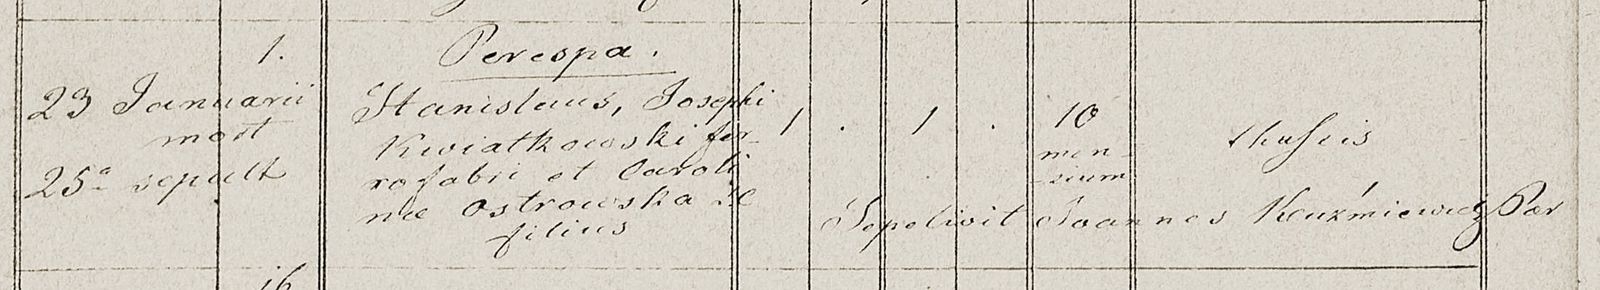 1.
Perespa.
23 Januarii
mort
25ª sepult
Stanislaus, Josephi
Kwiatkowski fer-
rofabri et Caroli
nae Ostrowska
filius
1 . 1 .
10
men-
sium
thussis
Sepelivit Joannes Kuźmiewicz Par
16